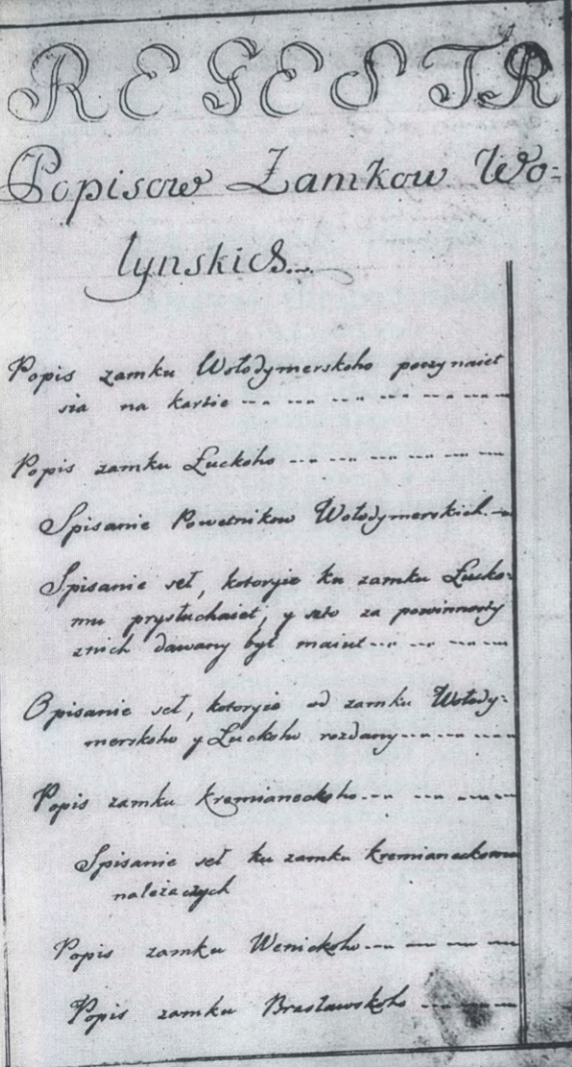 REGESTR
Popisow Zamkow Wo=
łynskich...
Popis zamku Wołodymerskoho poczynaiet
sia na kartie -- -- -- -- -- --
Popis zamku Łuckoho -- -- -- -- -- --
Spisanie Powetnikow Wołodymerskich. --
Spisanie seł, kotoryie ku zamku Łucko=
mu prysłuchaiut, y szto za powinnosty
znich dawany był maiut -- -- -- --
Opisanie seł, kotoryie od zamku Wołody=
merskoho y Łuckoho rozdany -- -- -- --
Popis zamku Kremianeckoho -- -- -- --
Spisanie seł ku zamku Kremianeckomu
należaczych
Popis zamku Wenickoho -- -- -- --
Popis zamku Brasławskoho -- -- --